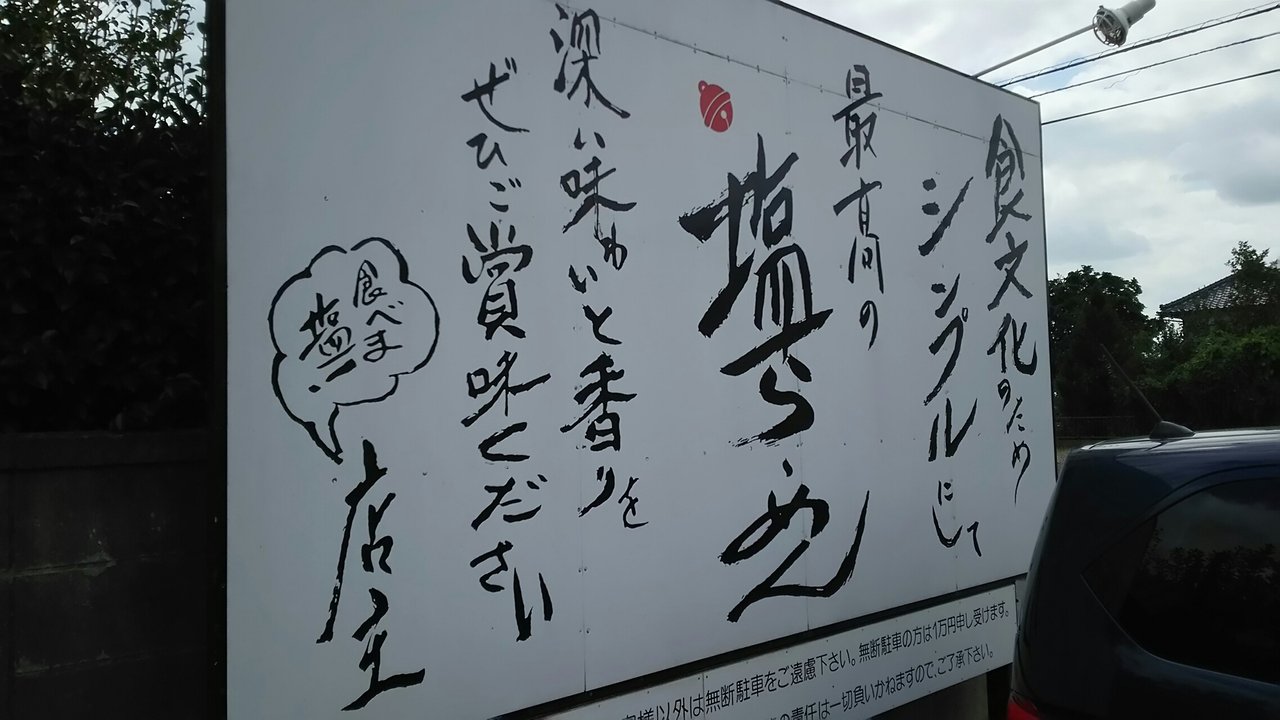 食文化のため
シンプルにして
最高の
塩らーめん
深い味わいと香りを
ぜひご賞味ください
食べま
塩!!
店主
様以外は無断駐車をご遠慮下さい。無断駐車の方は1万円申し受けます。
責任は一切負いかねますので、ご了承下さい。